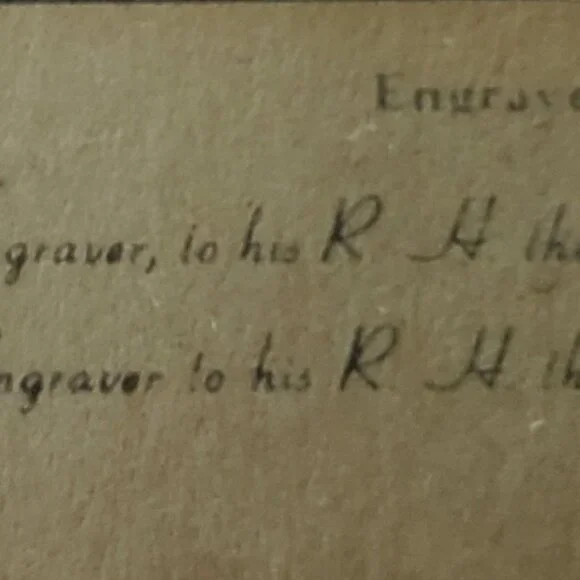 Engrave
graver, to his R. H. the
ngraver to his R. H. th